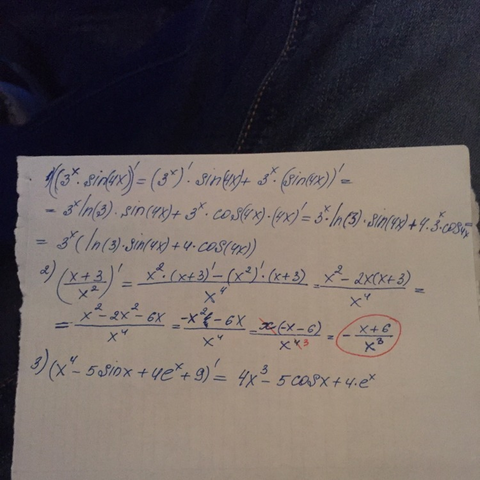 1) (3ˣ · sin(4x))' = (3ˣ)' · sin(4x) + 3ˣ · (sin(4x))' =
= 3ˣ ln(3) · sin(4x) + 3ˣ · cos(4x) · (4x)' = 3ˣ · ln(3) · sin(4x) + 4 · 3ˣ · cos4x =
= 3ˣ (ln(3) · sin(4x) + 4 · cos(4x))
2) ((x+3)/x²)' = (x² · (x+3)' - (x²)' · (x+3))/x⁴ = (x² - 2x(x+3))/x⁴ =
= (x² - 2x² - 6x)/x⁴ = (-x² - 6x)/x⁴ = x(-x-6)/x⁴ ³ = - (x+6)/x³
3) (x⁴ - 5sinx + 4eˣ + 9)' = 4x³ - 5cosx + 4·eˣ